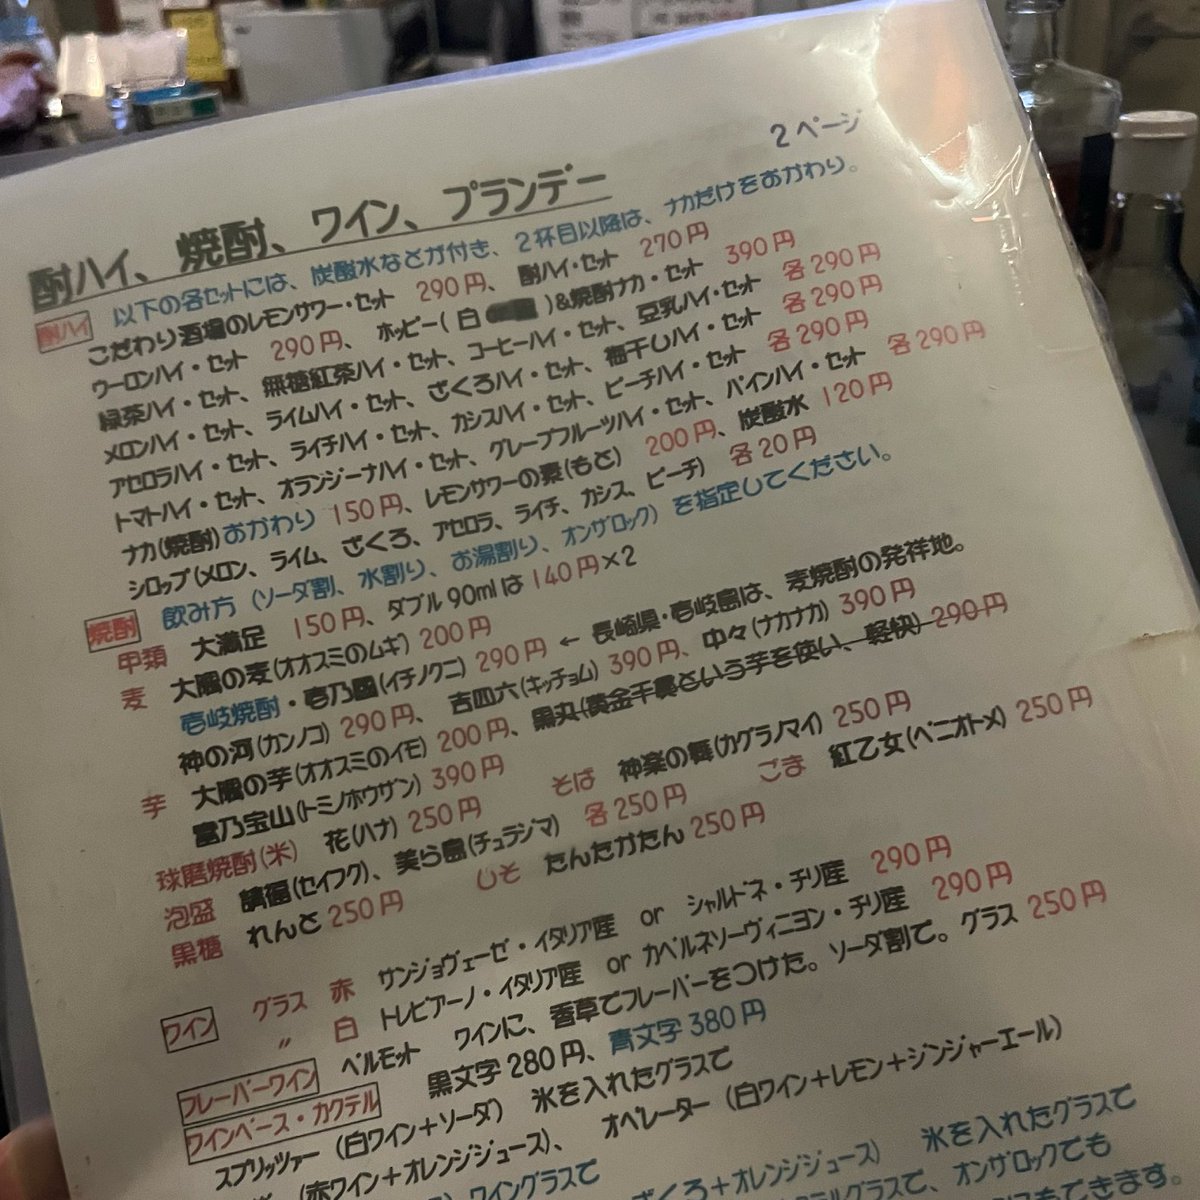 2ページ
酎ハイ、焼酎、ワイン、ブランデー
以下の各セットには、炭酸水などが付き、2杯目以降は、ナカだけをおかわり。
酎ハイ こだわり酒場のレモンサワー・セット 290円、 酎ハイ・セット 270円
ウーロンハイ・セット 290円、 ホッピー(白 )&焼酎ナカ・セット 390円
緑茶ハイ・セット、無糖紅茶ハイ・セット、コーヒーハイ・セット、豆乳ハイ・セット 各290円
メロンハイ・セット、ライムハイ・セット、ざくろハイ・セット、梅干しハイ・セット 各290円
アセロラハイ・セット、ライチハイ・セット、カシスハイ・セット、ピーチハイ・セット 各290円
トマトハイ・セット、オランジーナハイ・セット、グレープフルーツハイ・セット、パインハイ・セット 各290円
ナカ(焼酎)おかわり 150円、レモンサワーの素(もと) 200円、炭酸水 120円
シロップ(メロン、ライム、ざくろ、アセロラ、ライチ、カシス、ピーチ) 各20円
焼酎 飲み方 (ソーダ割、水割り、お湯割り、オンザロック) を指定してください。
甲類 大満足 150円、ダブル90mlは 140円×2
麦 大隅の麦(オオスミのムギ) 200円
壱岐焼酎・壱乃國(イチノクニ) 290円 ← 長崎県・壱岐島は、麦焼酎の発祥地。
神の河(カンノコ) 290円、 吉四六(キッチョム) 390円、中々(ナカナカ) 390円
芋 大隅の芋(オオスミのイモ) 200円、黒丸(黄金千貫という芋を使い、軽快) 290円
富乃宝山(トミノホウザン) 390円
球磨焼酎(米) 花(ハナ) 250円 そば 神楽の舞(カグラノマイ) 250円
泡盛 請福(セイフク)、美ら島(チュラジマ) 各250円 ごま 紅乙女(ベニオトメ) 250円
黒糖 れんと 250円 しそ たんたかたん 250円
ワイン グラス 赤 サンジョヴェーゼ・イタリア産 or シャルドネ・チリ産 290円
〃 白 トレビアーノ・イタリア産 or カベルネソーヴィニヨン・チリ産 290円
フレーバーワイン ベルモット ワインに、香草でフレーバーをつけた。ソーダ割で。グラス 250円
ワインベース・カクテル 黒文字 280円、青文字 380円
スプリッツァー (白ワイン+ソーダ) 氷を入れたグラスで
(赤ワイン+オレンジジュース)、 オペレーター (白ワイン+レモン+ジンジャーエール)
ワイングラスで ざくろ+オレンジジュース) 氷を入れたグラスで
グラスで、オンザロックでも
できます。